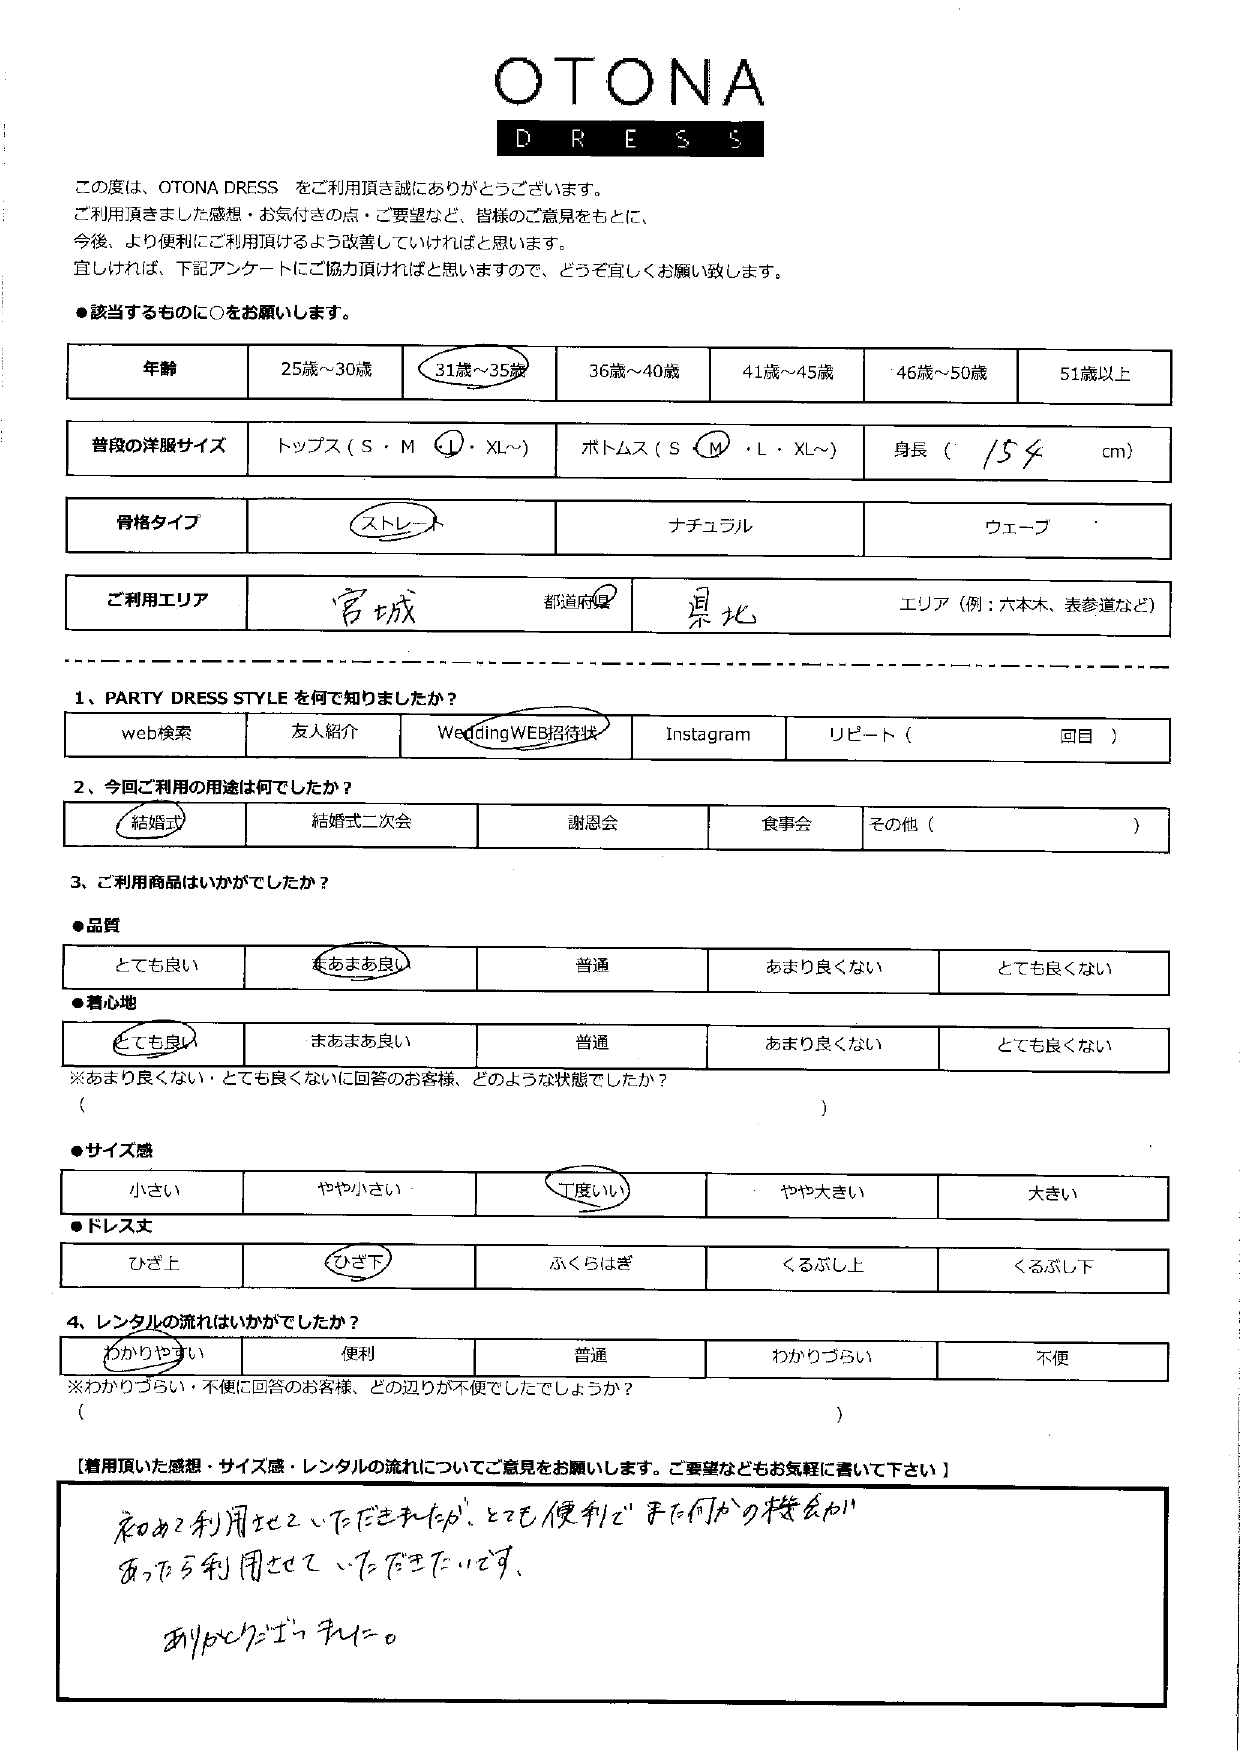 OTONA
DRESS
この度は、OTONA DRESS をご利用頂き誠にありがとうございます。
ご利用頂きました感想・お気付きの点・ご要望など、皆様のご意見をもとに、
今後、より便利にご利用頂けるよう改善していければと思います。
宜しければ、下記アンケートにご協力頂ければと思いますので、どうぞ宜しくお願い致します。
●該当するものに○をお願いします。
年齢 25歳～30歳 31歳～35歳 36歳～40歳 41歳～45歳 46歳～50歳 51歳以上
普段の洋服サイズ トップス（ S ・ M ・L・ XL～） ボトムス（ S ・M ・L ・ XL～） 身長 （ 154 cm）
骨格タイプ ストレート ナチュラル ウェーブ
ご利用エリア 宮城 都道府県 県北 エリア（例：六本木、表参道など）
1、PARTY DRESS STYLE を何で知りましたか？
web検索 友人紹介 WeddingWEB招待状 Instagram リピート（ 回目 ）
2、今回ご利用の用途は何でしたか？
結婚式 結婚式二次会 謝恩会 食事会 その他（ ）
3、ご利用商品はいかがでしたか？
●品質
とても良い まあまあ良い 普通 あまり良くない とても良くない
●着心地
とても良い まあまあ良い 普通 あまり良くない とても良くない
※あまり良くない・とても良くないに回答のお客様、どのような状態でしたか？
（ ）
●サイズ感
小さい やや小さい 丁度いい やや大きい 大きい
●ドレス丈
ひざ上 ひざ下 ふくらはぎ くるぶし上 くるぶし下
4、レンタルの流れはいかがでしたか？
わかりやすい 便利 普通 わかりづらい 不便
※わかりづらい・不便に回答のお客様、どの辺りが不便でしたでしょうか？
（ ）
【着用頂いた感想・サイズ感・レンタルの流れについてご意見をお願いします。ご要望などもお気軽に書いて下さい】
初めて利用させていただきましたが、とても便利でまた何かの機会が
あったら利用させていただきたいです、
ありがとうございました。